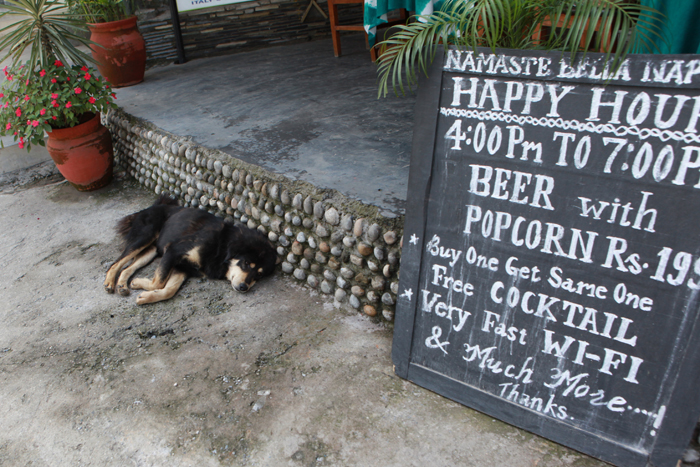 ITALY
NAMASTE BELLA NAP
HAPPY HOU
4:00 Pm TO 7:00P
BEER with
POPCORN Rs. 199
* Buy One Get Same One
Free COCKTAIL
* Very Fast WI-FI
& Much More....!
Thanks.